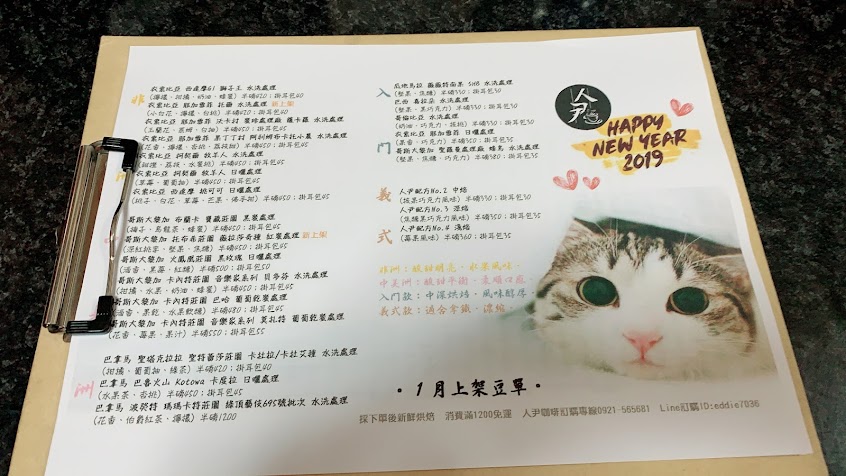 非
衣索比亞 西達摩G1 獅子王 水洗處理
(檸檬、柑橘、奶油、蜂蜜) 半磅420；掛耳包40
衣索比亞 耶加雪菲 托爾 水洗處理 新上架
(小白花、檸檬、白桃) 半磅420；掛耳包40
衣索比亞 耶加雪菲 沃卡村 水洗處理
半磅450；掛耳包45
衣索比亞 耶加雪菲 果丁丁村 水洗處理
半磅450；掛耳包45
衣索比亞 詞契爾 牧羊人 水洗處理
半磅450；掛耳包45
衣索比亞 詞契爾 牧羊人 日曬處理
(草莓、葡萄柚) 半磅450；掛耳包45
衣索比亞 西達摩 桃可可 日曬處理
(桃子、白花、草莓、芒果、佛手柑) 半磅450；掛耳包45
哥斯大黎加 布蘭卡 寶藏莊園 黑蜜處理
(梅子、烏龍茶、蜂蜜) 半磅450；掛耳包45
哥斯大黎加 托布希莊園 薇拉莎奇種 紅蜜處理 新上架
(深紅桃李、堅果、焦糖) 半磅450；掛耳包45
哥斯大黎加 火鳳凰莊園 黑玫瑰 日曬處理
(酒香、黑莓、紅糖) 半磅500；掛耳包50
哥斯大黎加 卡內特莊園 音樂家系列 貝多芬 水洗處理
(柑橘、水果、奶油、蜂蜜) 半磅450；掛耳包45
哥斯大黎加 卡內特莊園 巴哈 葡萄乾蜜處理
(酒香、果乾、水果軟糖) 半磅480；掛耳包45
哥斯大黎加 卡內特莊園 音樂家系列 莫札特 葡萄乾蜜處理
(花香、莓果、果汁) 半磅550；掛耳包55
巴拿馬 聖塔克拉拉 聖特蕾莎莊園 卡杜拉/卡杜艾種 水洗處理
(柑橘、葡萄柚、綠茶) 半磅420；掛耳包40
巴拿馬 巴魯火山 Kotowa 卡度拉 日曬處理
(水果茶、杏桃) 半磅450；掛耳包45
巴拿馬 波奎特 瑪瑪卡特莊園 綠頂藝伎695號批次 水洗處理
(花香、伯爵紅茶、檸檬) 半磅1200
入
門
瓜地馬拉 薇薇特南果 SHB 水洗處理
(堅果、焦糖) 半磅330；掛耳包30
巴西 喜拉朵 水洗處理
(堅果、黑巧克力) 半磅330；掛耳包30
哥倫比亞 水洗處理
(奶油、巧克力、核桃) 半磅330；掛耳包30
衣索比亞 耶加雪菲 日曬處理
(果香、巧克力) 半磅350；掛耳包35
哥斯大黎加 聖羅曼處理廠 蜂鳥 水洗處理
(堅果、焦糖、巧克力) 半磅380；掛耳包35
義
式
人尹配方No.2 中焙
(核果巧克力風味) 半磅330；掛耳包30
人尹配方No.3 深焙
(焦糖黑巧克力風味) 半磅350；掛耳包35
人尹配方No.4 淺焙
(莓果風味) 半磅360；掛耳包35
非洲：酸甜明亮、水果風味、
中美洲：酸甜平衡、柔順口感、
入門款：中深烘焙、風味醇厚、
義式款：適合拿鐵、濃縮、
人尹
HAPPY
NEW YEAR
2019
·1月上架豆單·
採下單後新鮮烘焙 消費滿1200免運 人尹咖啡訂購專線0921-565681 Line訂購ID:eddie7036